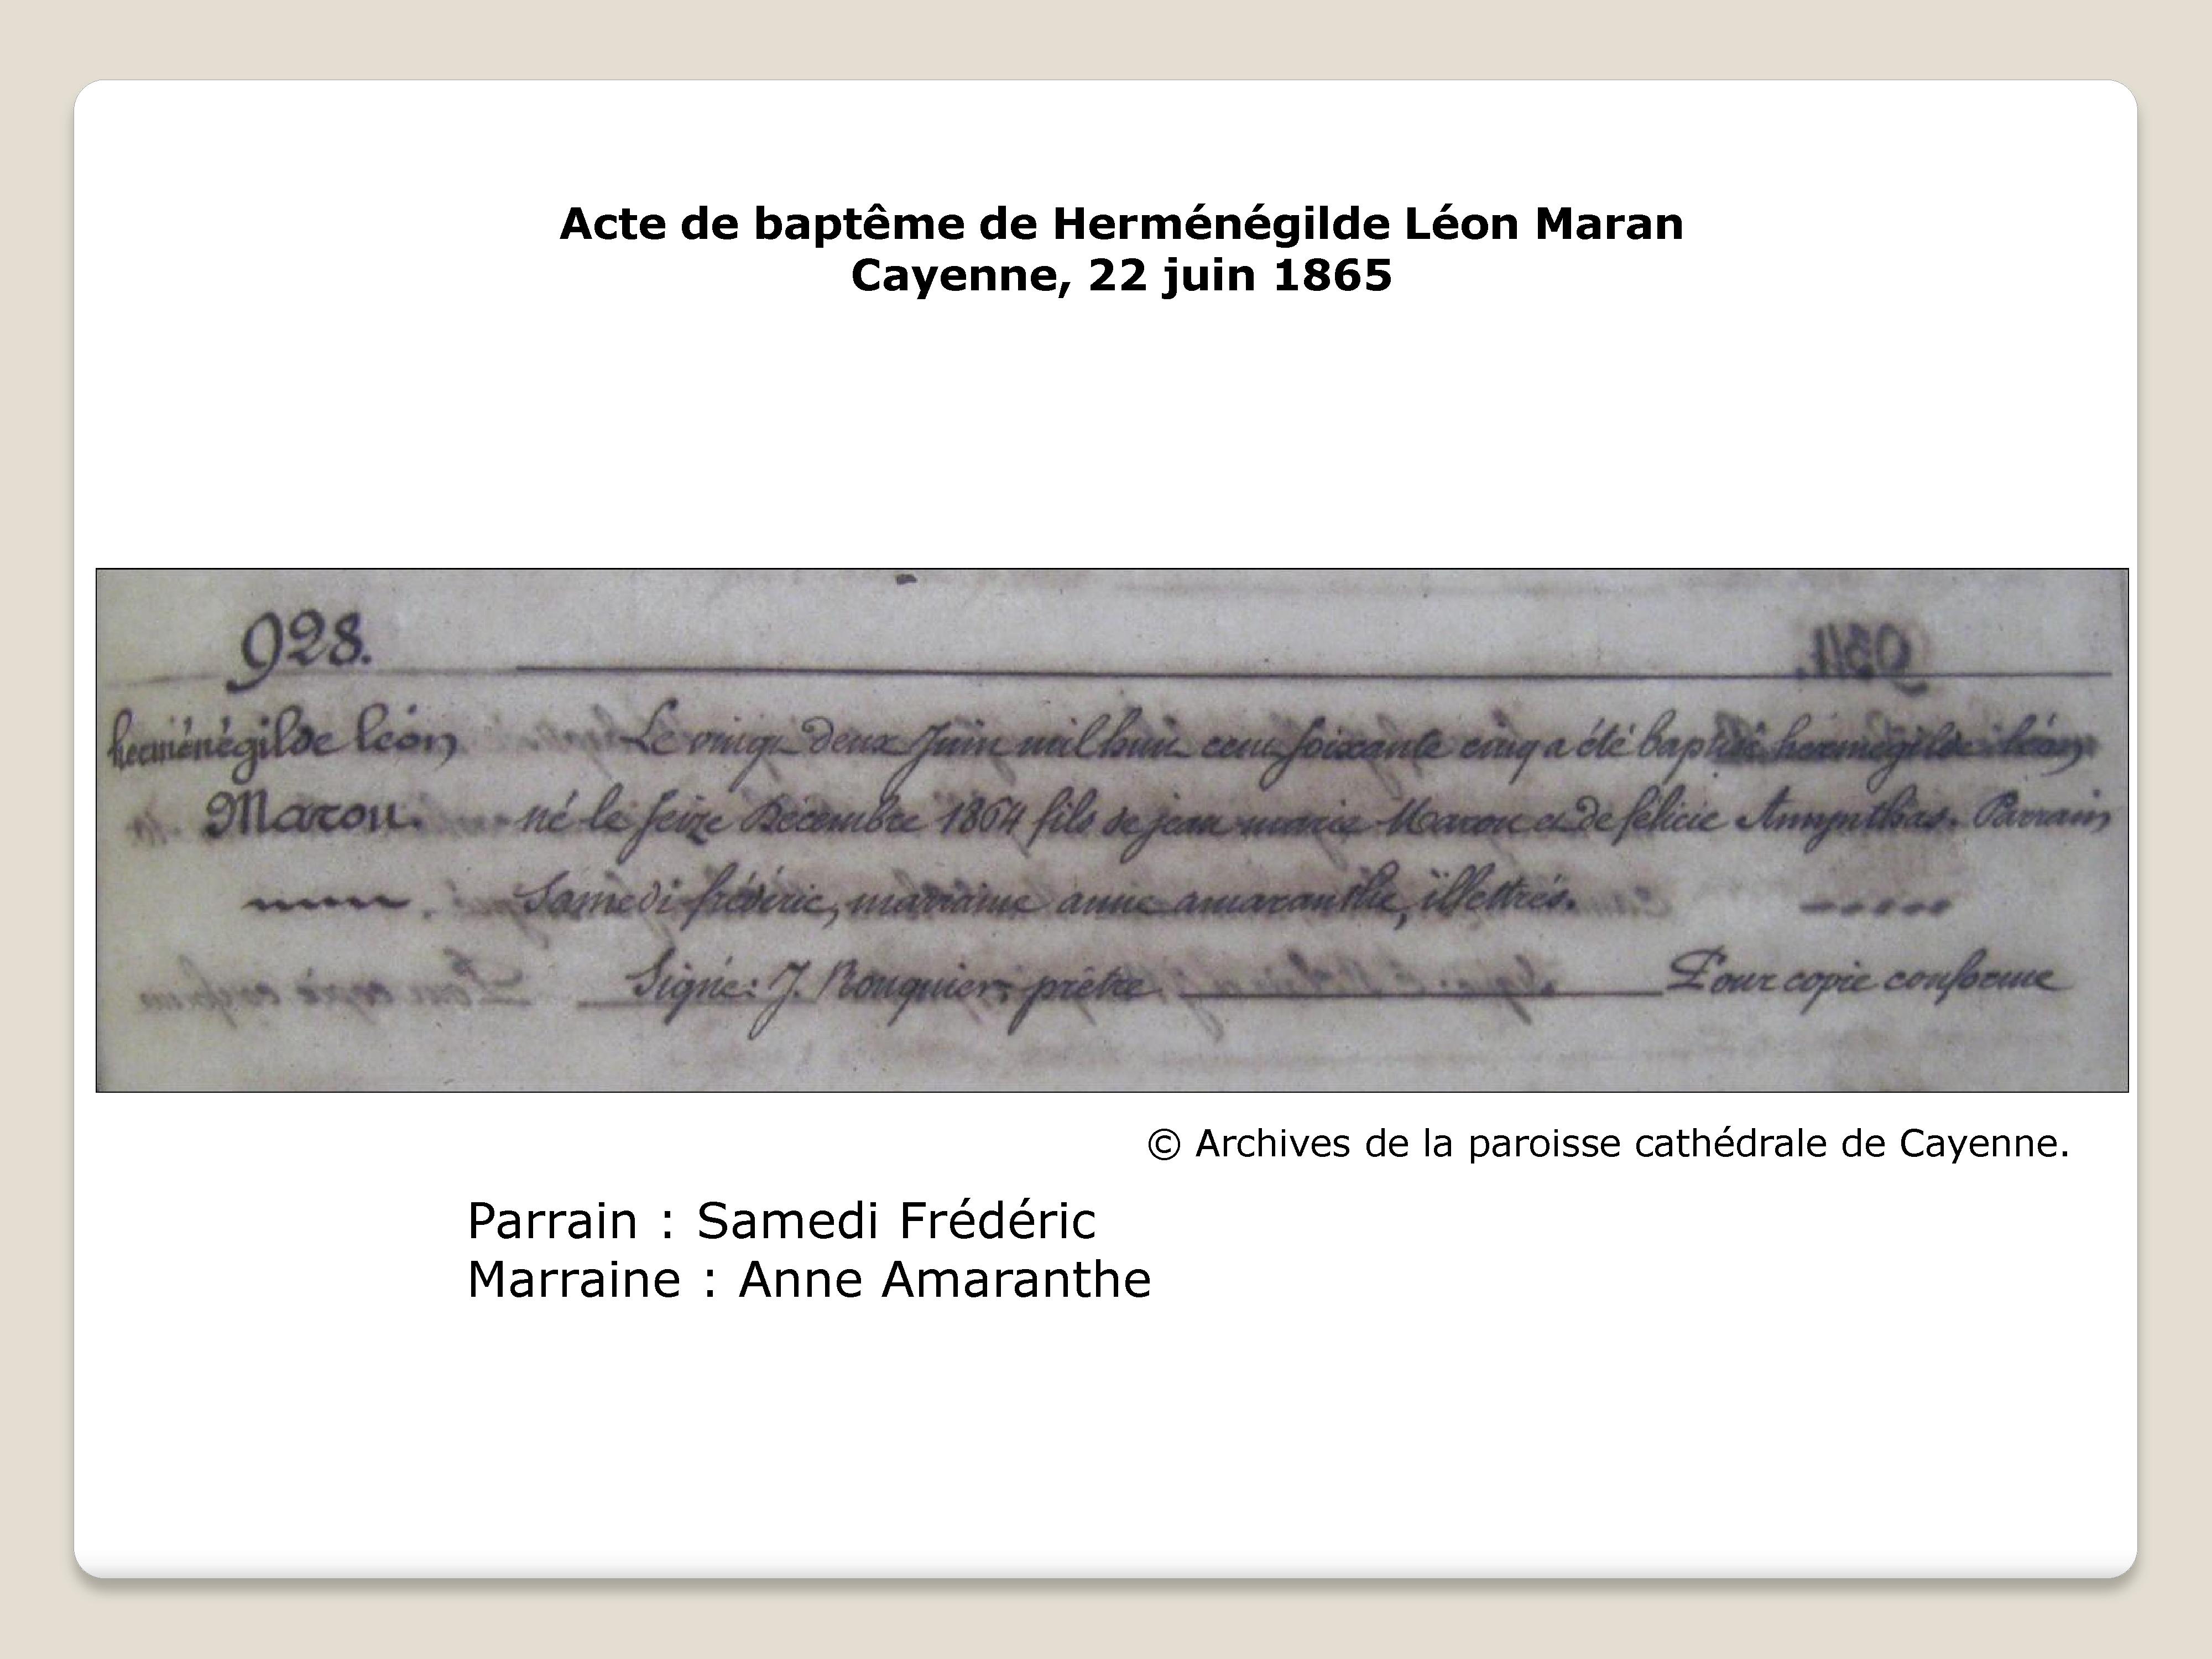 Acte de baptême de Herménégilde Léon Maran
Cayenne, 22 juin 1865
928.
herménégilde léon
Marou.
Le vingt deux Juin mil huit cent soixante cinq a été baptisé hermégilde léon
né le seize Décembre 1864 fils de jean marie Marou et de félicie Amynthas. Parrain
Samedi frédéric, marraine anne amaranthe, illettrés.
Signé: J. Rouquier, prêtre Pour copie conforme
© Archives de la paroisse cathédrale de Cayenne.
Parrain : Samedi Frédéric
Marraine : Anne Amaranthe